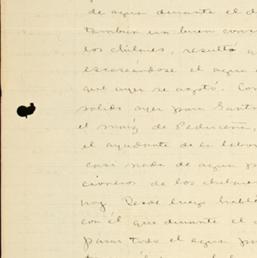 de agua durante el d
también un buen conv
los chilares, resultó a
escaseándose el agua
que ayer se agotó. Con
salido ayer para Santi
el maíz de Pedriceña,
el ayudante de la labor
casi nada de agua p
cioneros de los chilares
hoy. Desde luego hablé
con él que durante el
pasar todo el agua pa